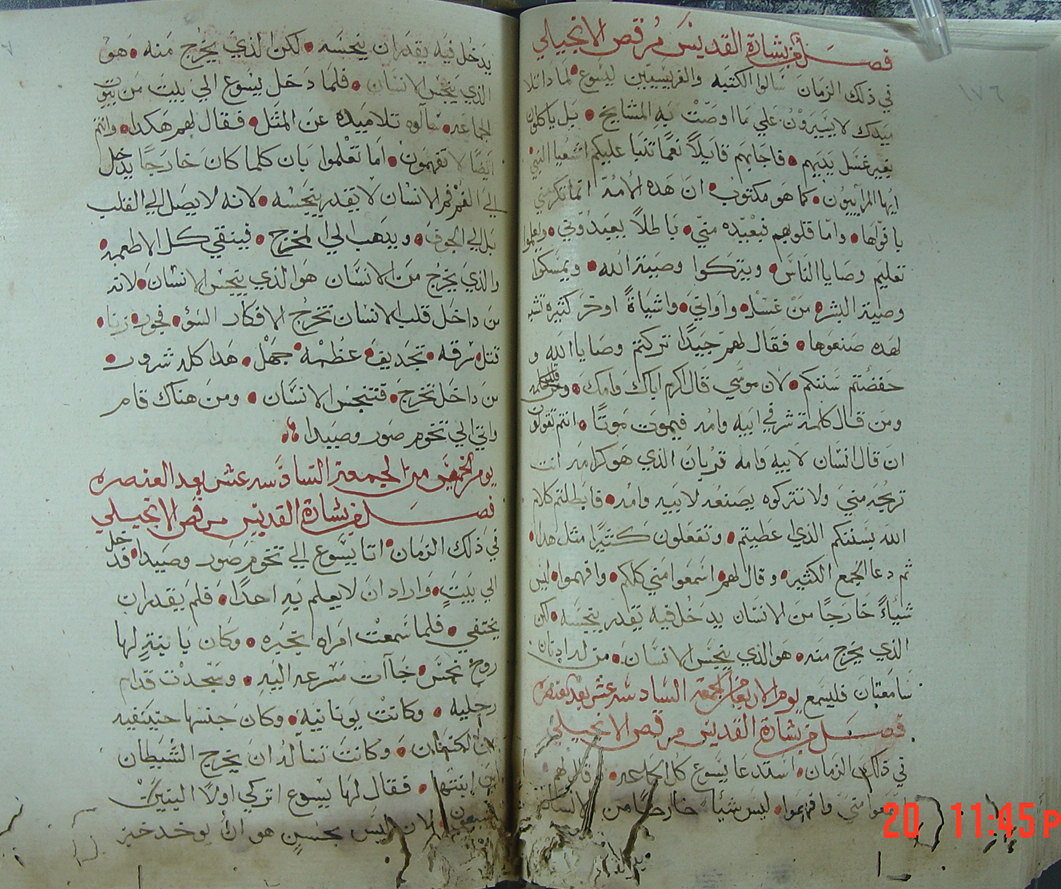 فصل من بشارة القديس مرقص الانجيلي
١٧٦
في ذلك الزمان سالوا الكتبه والفريسيين ليسوع لماذا تلا
ميدك لا يسيرون علي ما اوصت به المشايخ • بل ياكلون
بغير غسل يديهم • فاجابهم قايلاً نعما تنبا عليكم اشعيا النبي
ايها المراييون • كما هو مكتوب • ان هذه الامه انما تكرمني
بافواها • واما قلوبهم فبعيده مني • باطلاً يعبدوني •
تعليم وصايا الناس • ويتركوا وصية الله • ويمسكوا
وصية البشر • من غسل • واواني • واشياءً اوخر كثيرة تشبه
لهده صنعوها • فقال لهم جيدًا تركتم وصايا الله و
حفضتم سننكم • لان موسي قال اكرم اباك وامك •
ومن قال كلمة شر في ابيه وامه فيموت موتًا • انتم تقولون
ان قال نسان لابيه وامه قربان الذي هو كرامه انت
تربحه مني ولا تتركوه يصنعه لابيه وامه • فابطلتم كلام
الله بسنتكم الذي عطيتم • وتفعلون كتيرًا متل هدا •
ثم دعا الجمع الكثير • وقال لهم اسمعوا مني كلكم • وافهموا • ليس
شياءً خارجًا من الانسان يدخل فيه يقدر ينجسه • لكن
الذي يخرج منه • هو الذي ينجس الانسان • من له ادنان
سامعتان فليسمع يوم الاربعا من الجمعة السادسه عشر بعد العنصره
فصل من بشارة القديس مرقص الانجيلي
في ذلك الزمان • استدعا يسوع كل الجماعه • وقال لهم
مني وافهموا • ليس شياء خارجًا من الانسان
يدخل فيه يقدر ان ينجسه • لكن الذي يخرج منه • هو
الذي ينجس الانسان • فلما دخل يسوع الي بيت من بيوت
الجماعه • سالوه تلاميده عن المثل • فقال لهم هكدا • وانتم
ايضًا لا تفهمون • اما تعلموا بان كلما كان خارجًا يدخل
الي الفم في الانسان لا يقدر ينجسه • لانه لا يصل الي القلب
بل الي الجوف • ويدهب الي المخرج • فينقي كل الاطعمة •
والذي يخرج من الانسان هو الذي ينجس الانسان • لانه
من داخل قلب الانسان تخرج الافكار السؤ • فجور • زنا •
قتل • سرقه • تجديف • عظمة • جهل • هدا كله شرور •
من داخل تخرج • فتنجس الانسان • ومن هناك قام
واتي الي تخوم صور وصيدا •
يوم الخميس من الجمعة السادسه عشر بعد العنصره
فصل من بشارة القديس مرقص الانجيلي
في ذلك الزمان • اتا يسوع الي تخوم صور وصيدا • فدخل
الي بيت • واراد ان لا يعلم به احدًا • فلم يقدر ان
يختفي • فلما سمعت امراه بخبره • وكان بابنتٍ لها
روح نجس • جاات مسرعه اليه • وسجدت قدام
رجليه • وكانت يونانيه • وكان جنسها
وكانت تساله ان يخرج الشيطان
من ابنتها • فقال لها يسوع اتركي اولاً البنين
ليس بحسنٍ هو ان يوخد خبز